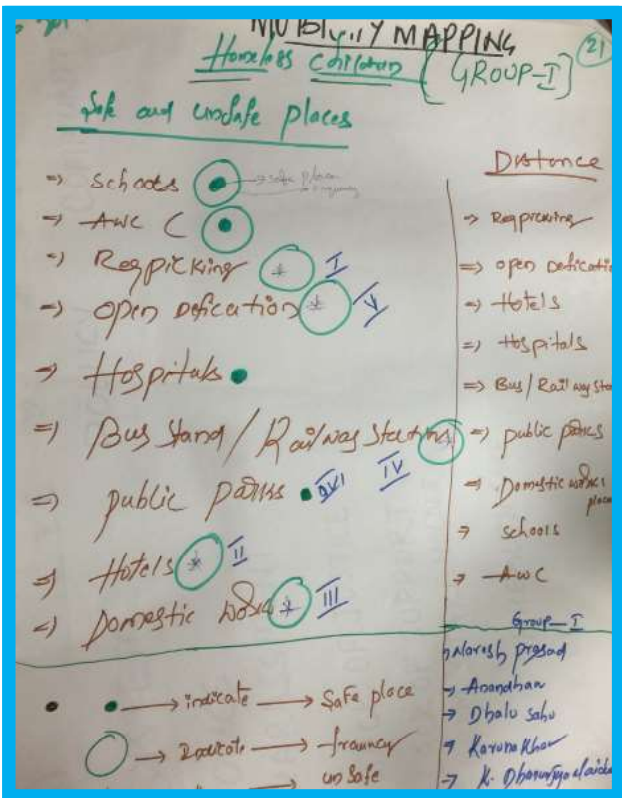 MAPPING
Homeless Children [GROUP-I]
21
Safe and unsafe places
=> Schools → safe place
→ AWC C
=) Regpicking I
=) open Defication V
→ Hospitals
=) Bus Stand / Railway Stations IV
=) public parks VI
=) Hotels II
=) Domestic III
→ indicate → Safe place
→ Indicate →
→ un Safe
Distance
→ Regpicking
=> open Deficatio
→ Hotels
=) Hospitals
=> Bus/Railway Sta
=) public parks
→ Domestic
place
→ schools
→ AWC
Group-I
Naresh prasad
→ Anandhan
→ Dhalu sahu
→ Karuna Khar
→ K.